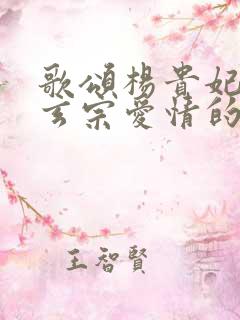 歌頌楊貴妃
玄宗愛情的
王智賢